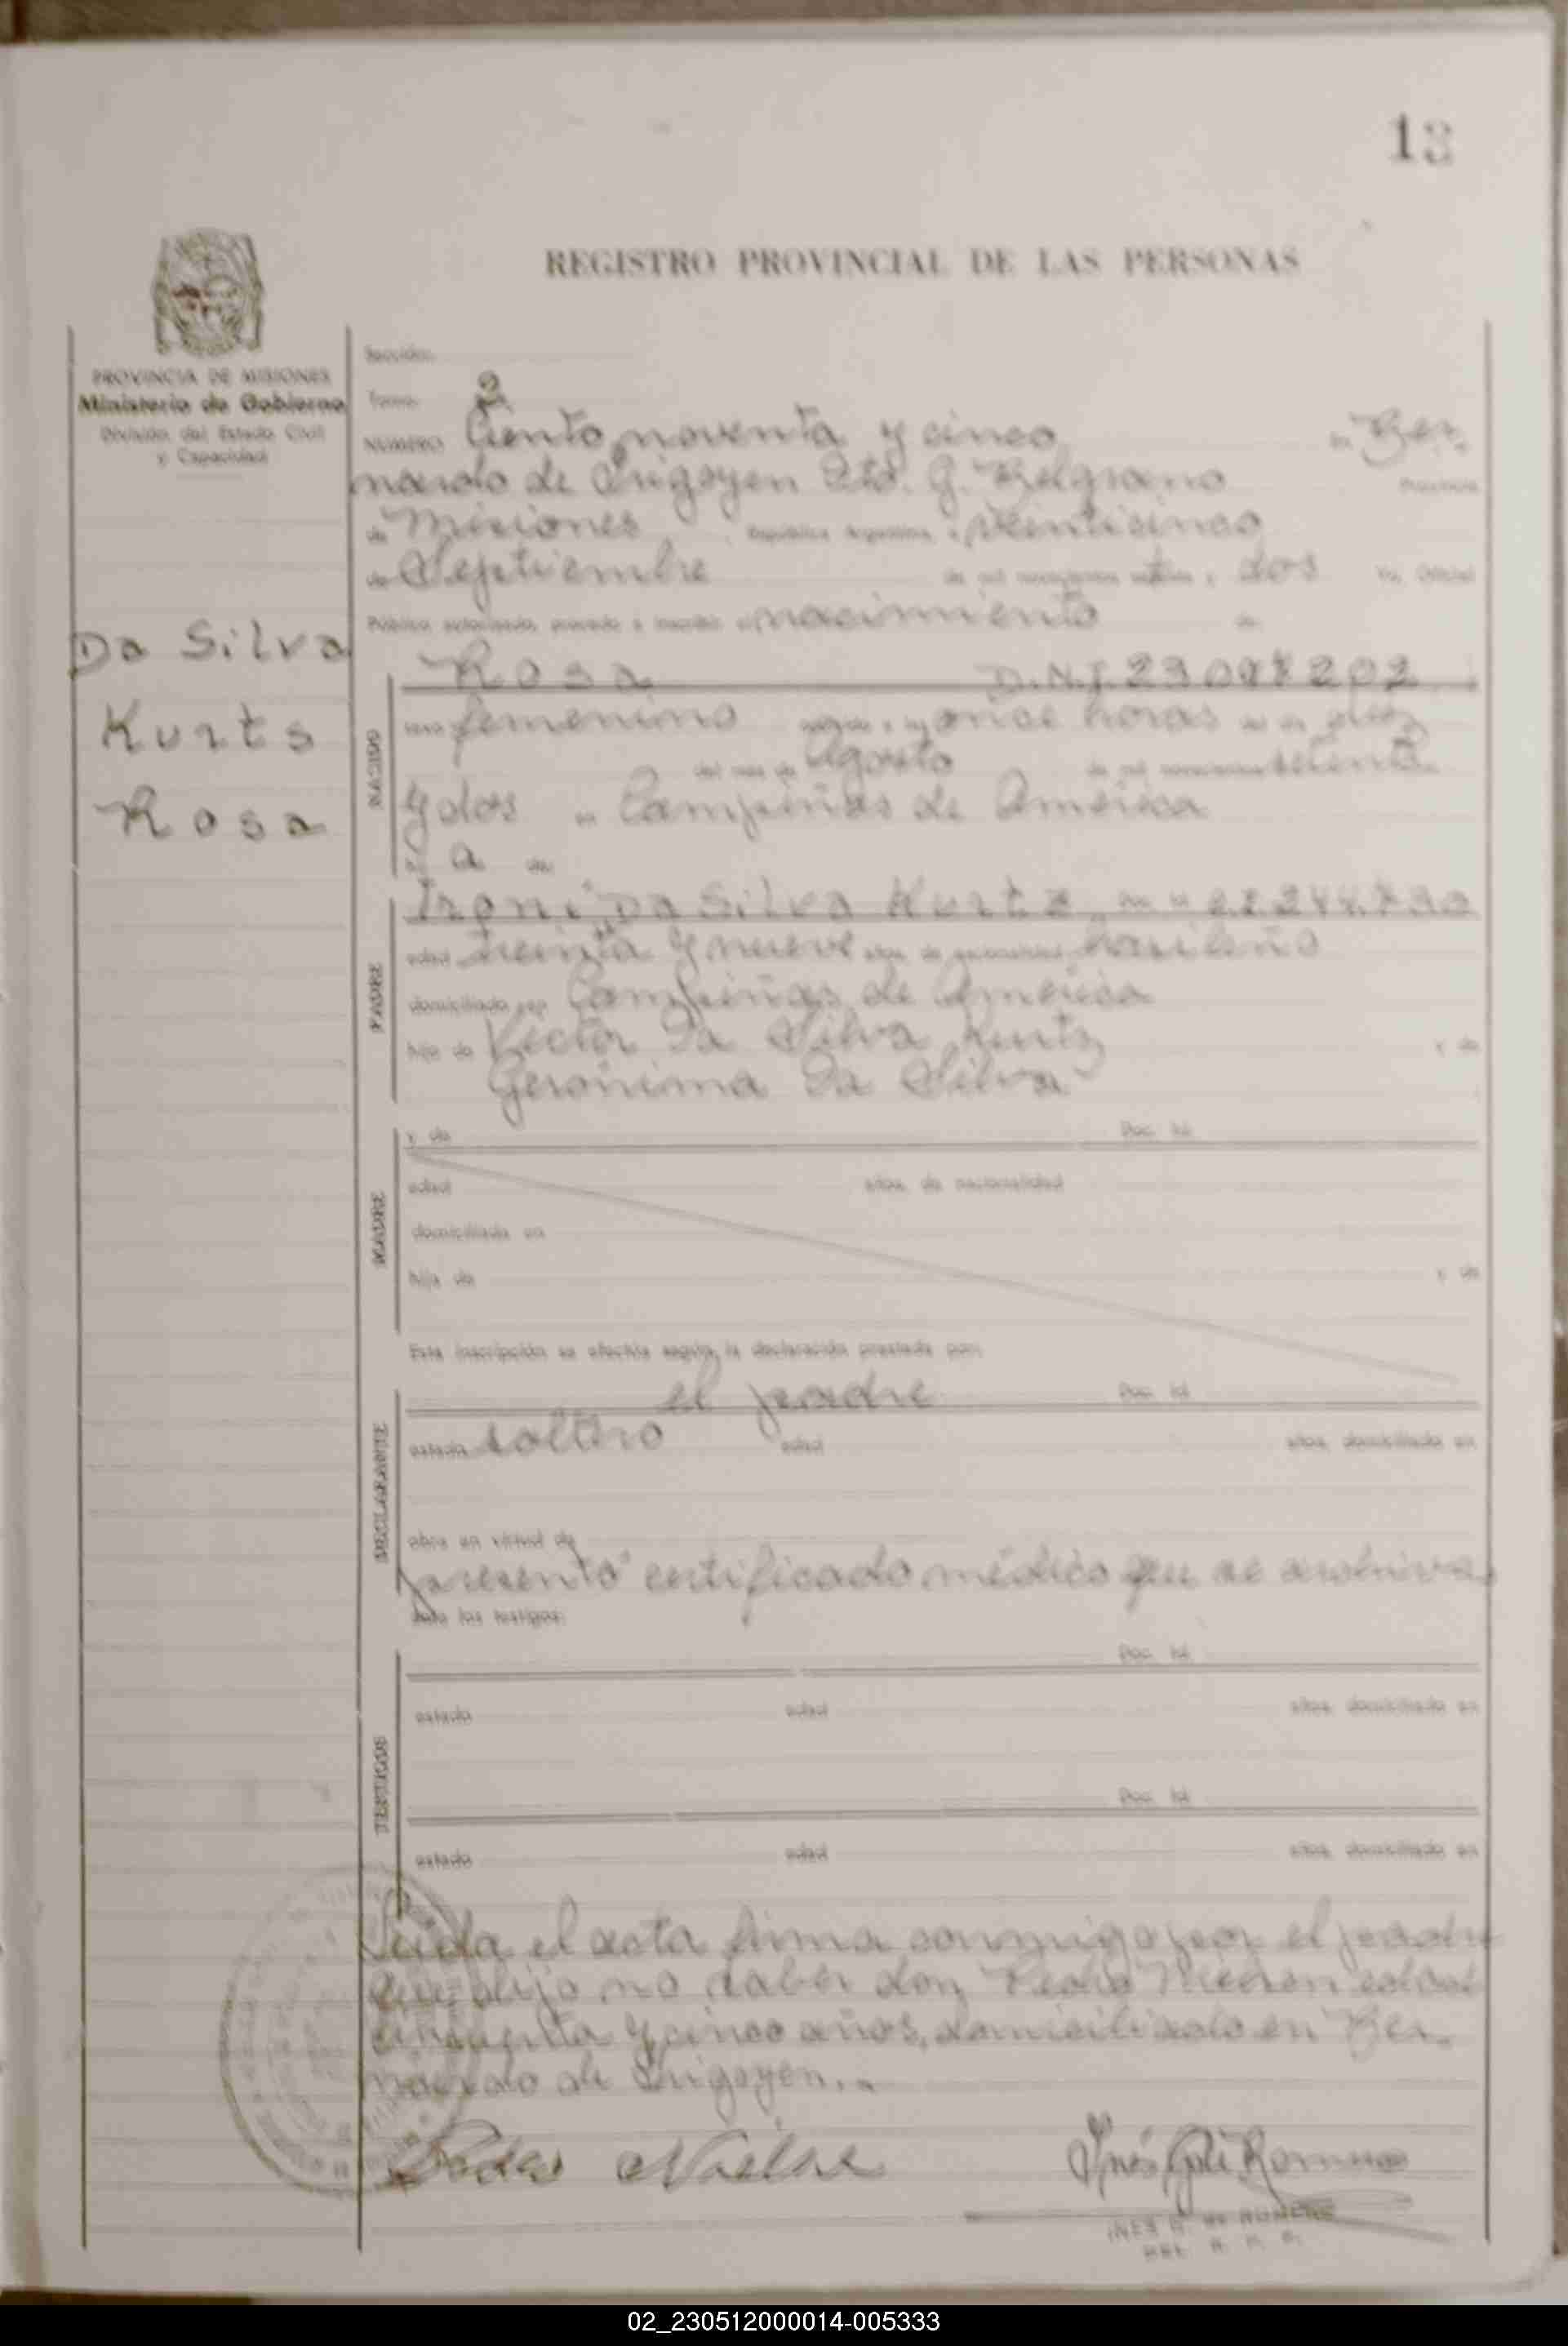 13
REGISTRO PROVINCIAL DE LAS PERSONAS
PROVINCIA DE MISIONES
Ministerio de Gobierno
División del Estado Civil
y Capacidad
Sección
Tomo 2
NUMERO Ciento noventa y cinco en Ber.
nardo de Irigoyen Dto. G. Belgrano Provincia
de Misiones República Argentina, a veinticinco
de Septiembre de mil novecientos setenta y dos Yo, Oficial
Público autorizado, procedo a inscribir el nacimiento de
Da Silva
Kurts
Rosa
NACIDO
Rosa D.N.I.
sexo femenino once horas del día diez
del mes de Agosto de mil novecientos setenta
y dos en Campiñas de América
a de
PADRE
Da Silva Kurtz
edad treinta y nueve años de nacionalidad brasileño
domiciliado en Campiñas de América
hijo de Victor Da Silva Kurtz y de
Gerónima Da Silva
MADRE
y de Doc. Id.
edad años de nacionalidad
domiciliada en
hija de y de
Esta inscripción se efectúa según la declaración prestada por:
DECLARANTE
el padre Doc. Id.
estado soltero edad años, domiciliado en
obra en virtud de
presentó certificado médico que se archiva
Ante los testigos:
TESTIGOS
Doc. Id.
estado edad años, domiciliado en
Doc. Id.
estado edad años, domiciliado en
Leida el acta firma conmigo por el padre
que dijo no saber don Pedro edad
cincuenta y cinco años, domiciliado en Ber.
nardo de Irigoyen.
Inés Romero
02_230512000014-005333